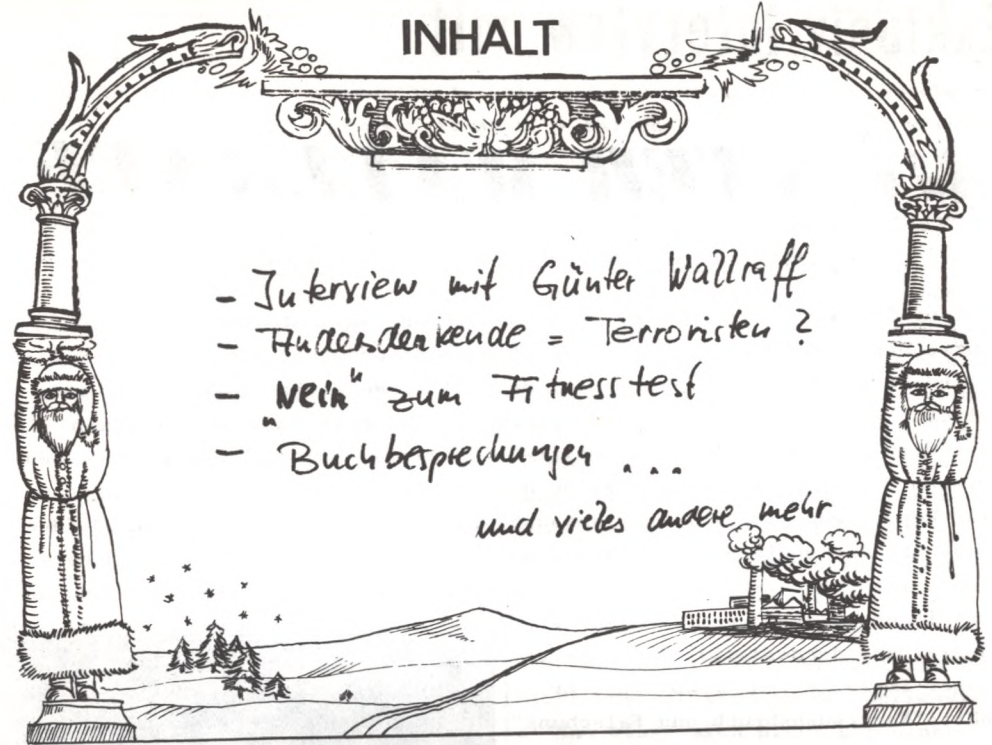 INHALT
- Interview mit Günter Wallraff
- Andersdenkende = Terroristen ?
- „Nein" zum Fitnesstest
- Buchbesprechungen ...
und vieles andere mehr